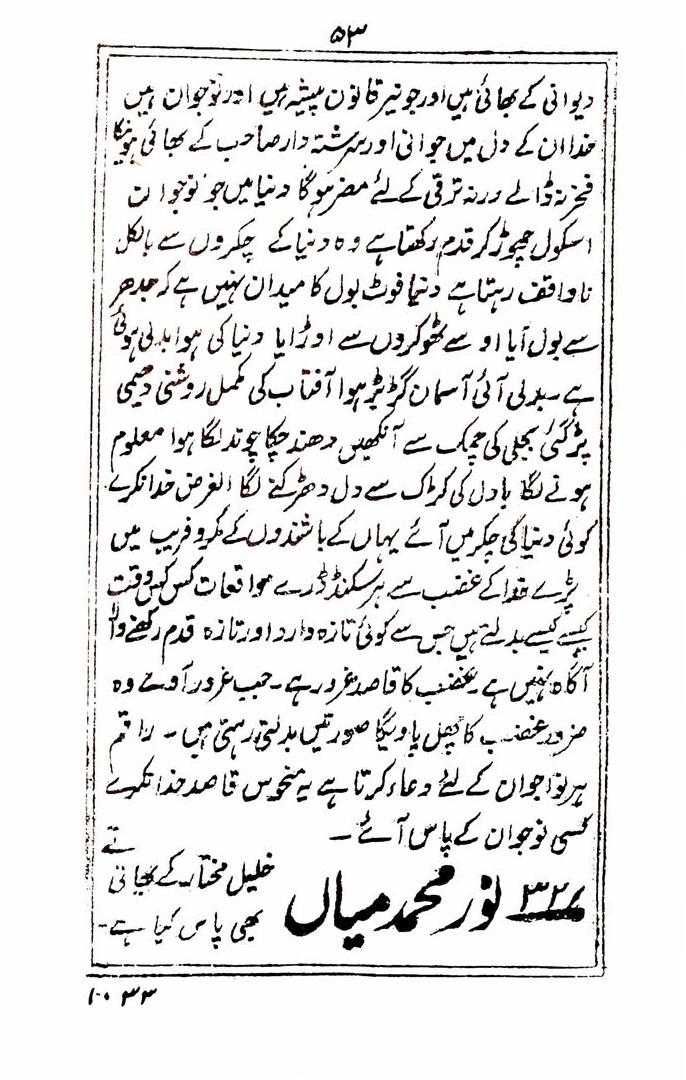 ۵۳
دیوانی کے بھائی ہیں اور جونیر قانون پیشہ ہیں اور نوجوان ہیں
خدا ان کے دل میں جوانی اور سرشتہ دار صاحب کے بھائی ہونیکا
فخر نہ ڈالے ورنہ ترقی کے لئے مضر ہوگا دنیا میں جو نوجوان
اسکول چھوڑ کر قدم رکھتا ہے وہ دنیا کے چکروں سے بالکل
ناواقف رہتا ہے دنیا فوٹ بول کا میدان نہیں ہے کہ جدھر
سے بول آیا او سے ٹھوکروں سے اوڑایا دنیا کی ہوا بدلی ہوئی
ہے ۔ بدلی آئی آسمان گڑبڑ ہوا آفتاب کی مکمل روشنی دھیمی
پڑ گئی بجلی کی چمک سے آنکھیں دھند چکا چوند لگا ہوا معلوم
ہونے لگا بادل کی کڑاک سے دل دھڑکنے لگا الغرض خدا نکرے
کوئی دنیا کی چکر میں آئے یہاں کے باشندوں کے مکر و فریب میں
پڑے خدا کے غضب سے ہر سکنڈ ڈرے مواقعات کس کس وقت
کیسے کیسے بدلتے ہیں جس سے کوئی تازہ وارد اور تازہ قدم رکھنے والا
آگاہ نہیں ہے ۔ غضب کا قاصد غرور ہے ۔ جب غرور آوے وہ
ضرور غضب کا پھل پاویگا صورتیں بدلتی رہتی ہیں ۔ راقم
ہر نوجوان کے لئے دعاء کرتا ہے یہ منحوس قاصد خدا نکرے
کسی نوجوان کے پاس آئے ۔
۳۲۷ نور محمد میاں
خلیل مختار کے بھائی نے
بھی پاس کیا ہے ۔
۱۰۳۳